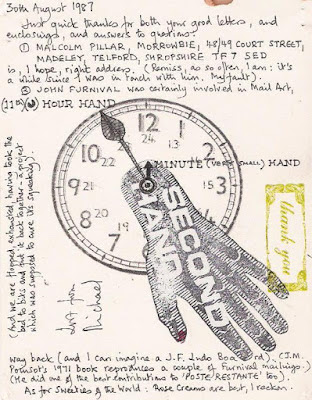 30th August 1987
Just quick thanks for both your good letters, and
enclosings, and answers to questions.
① MALCOLM PILLAR, MORROWBIE, 48/49 COURT STREET,
MADELEY, TELFORD, SHROPSHIRE TF7 5ED
is, I hope, right address. (Remiss, as so often, I am: it's
a while since I was in touch with him. My fault).
② JOHN FURNIVAL was certainly involved in Mail Art,
(11th) HOUR HAND
12
24
23
13
1
14
2
15
3
10
22
9
21
8
20
7
19
MINUTE (VERY SMALL) HAND
SECOND
HAND
thank you
(And we are flopped, exhausted, having took the
bed to bits and put it back together - a project
which was supposed to cure its squeaking).
Love from
Michael
way back (and I can imagine a J.F. Ludo Board). (J.M.
Poinsot's 1971 book reproduces a couple of Furnival mailings.)
(He did one of the best contributions to 'POSTE RESTANTE' too).
As for Sweeties of the World: Rose Creams are best, I reckon.